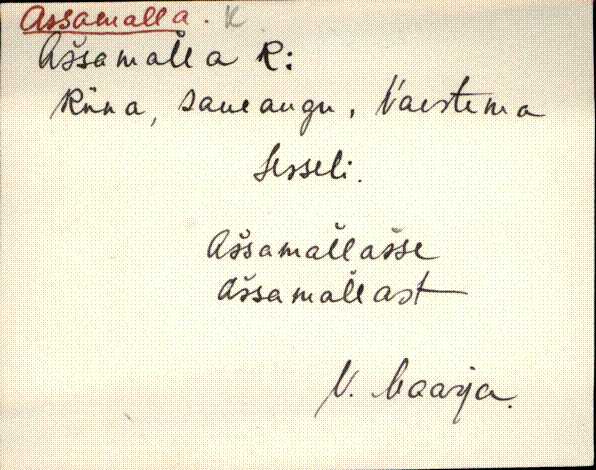 Assamalla. K
Aššamal̆l̆a K:
Rüna, Saueaugu, Vaestema
Sesseli.
Aššamal̆l̆ašse
Aššamal̆l̆ast
V. Maarja.